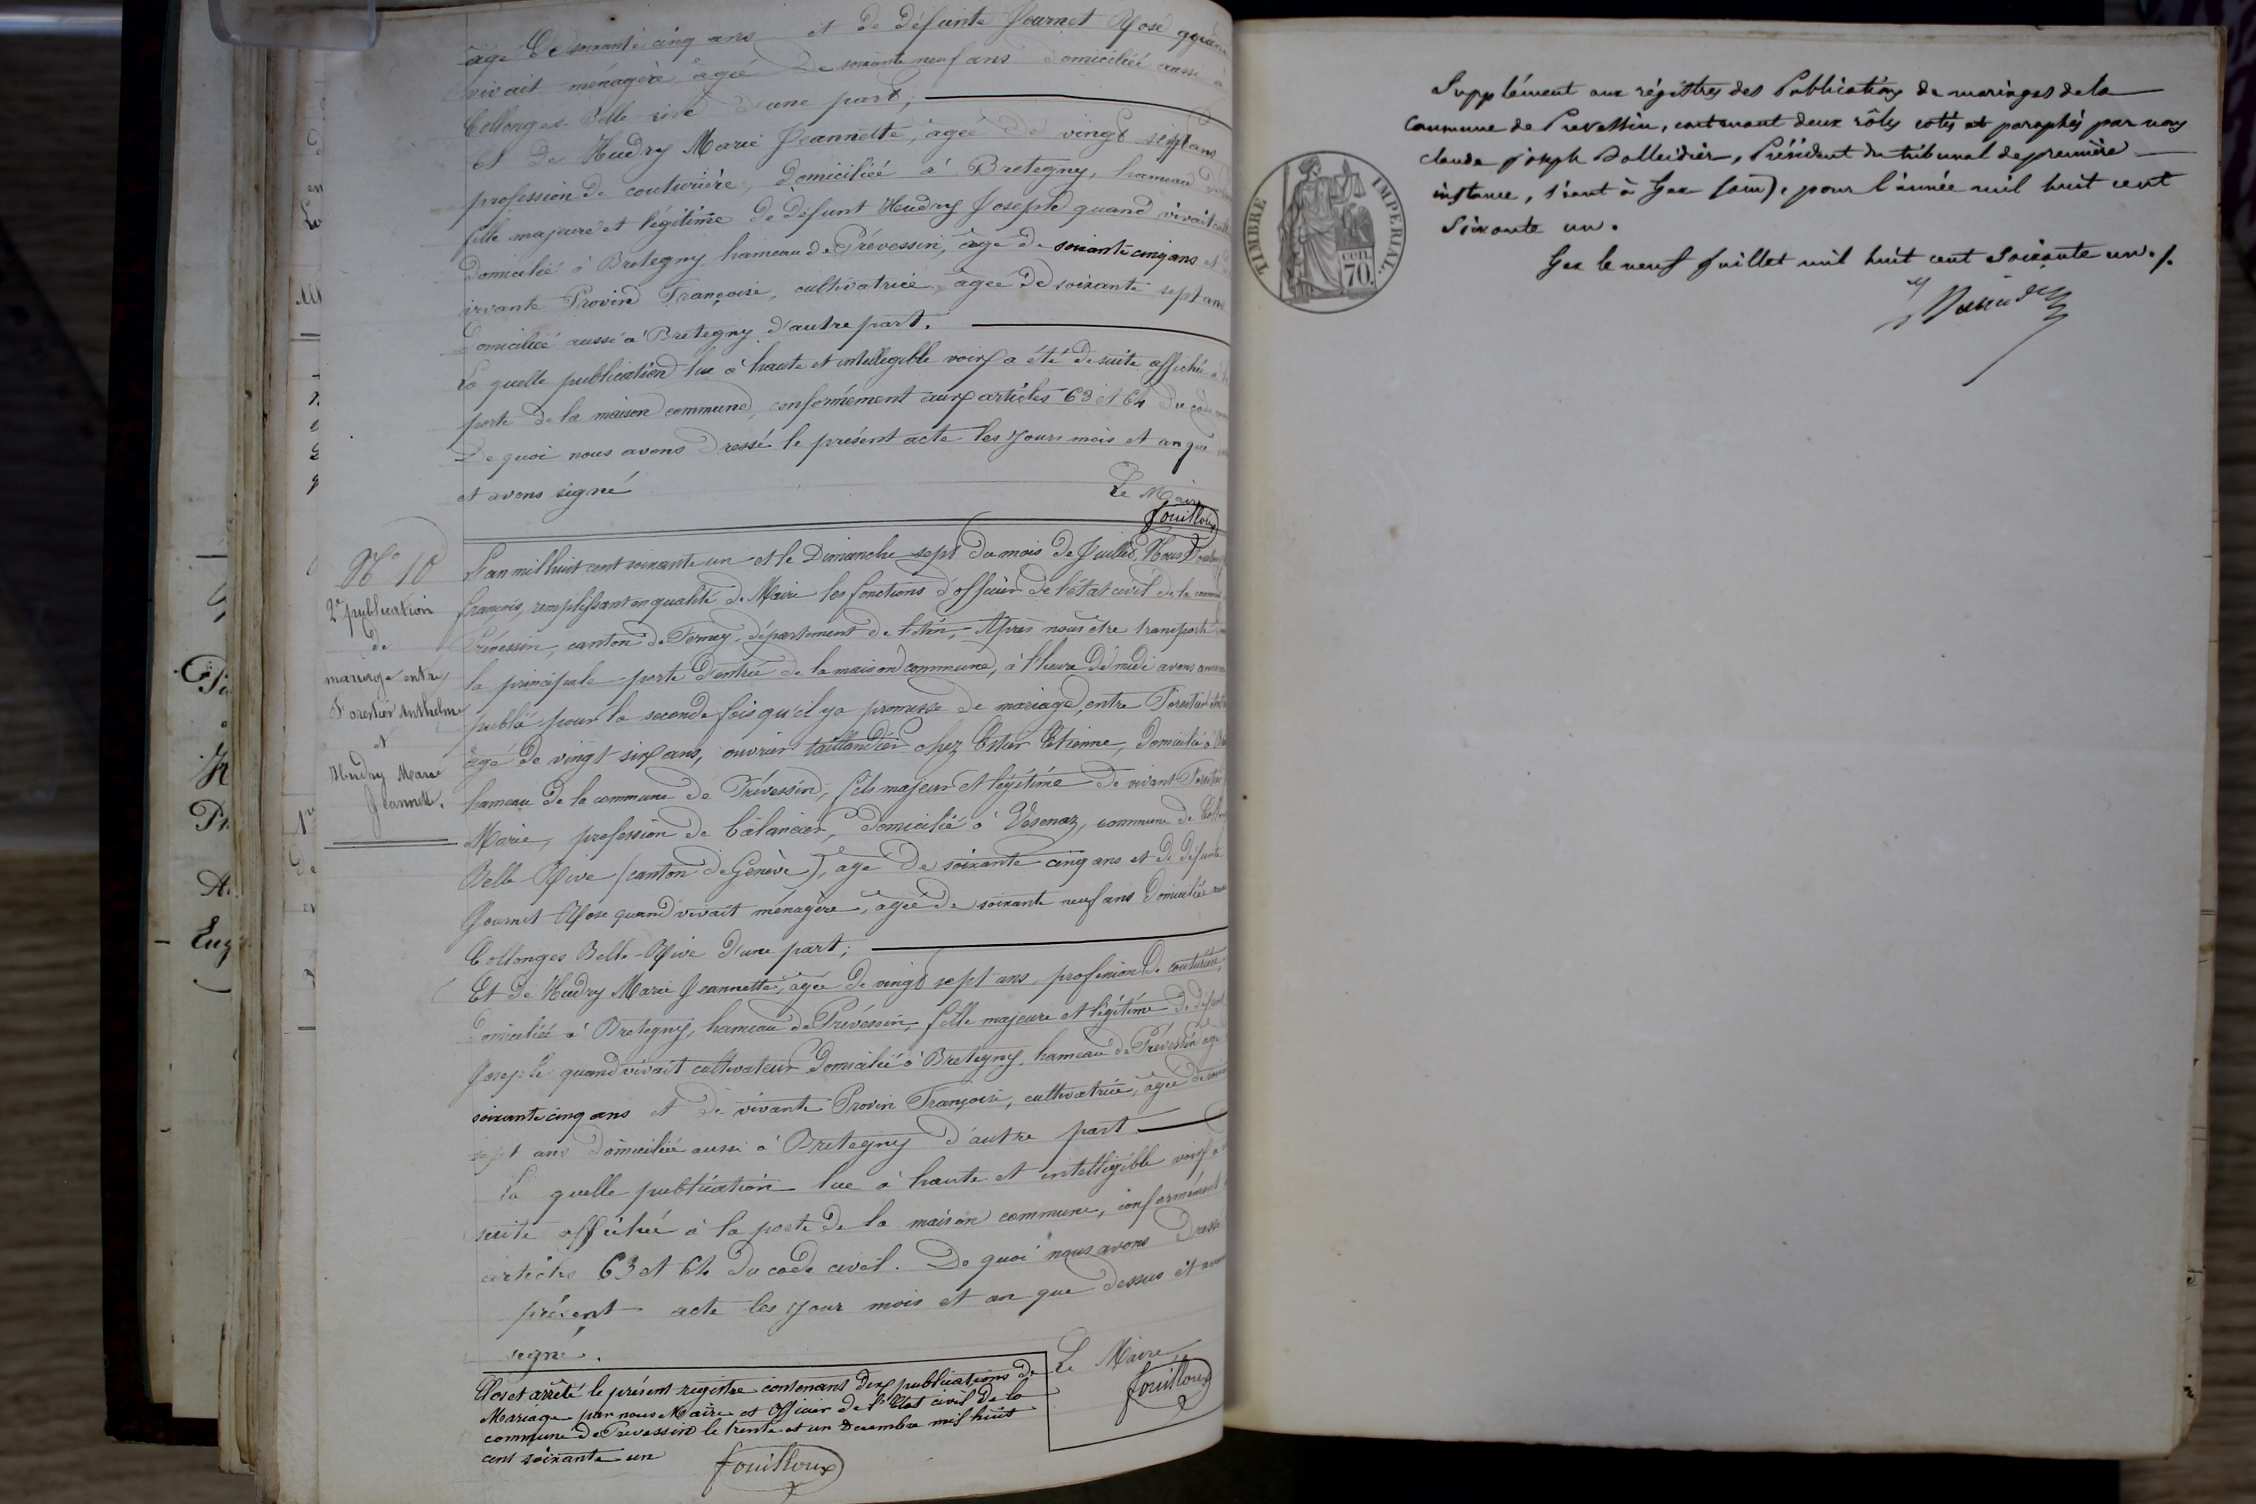 âgé de soixante cinq ans et de défunte Journet Rose quand
vivait ménagère âgée de soixante neuf ans domiciliée aussi à
Collonges Belle rive d'une part;
et de Hudry Marie Jeannette, âgée de vingt sept ans
profession de couturière, domiciliée à Bretegny, hameau de
fille majeure et légitime de défunt Hudry Joseph quand vivait
domicilié à Bretegny hameau de Prévessin, âgé de soixante cinq ans et
vivante Provin Françoise, cultivatrice, âgée de soixante sept ans
domiciliée aussi à Bretegny d'autre part.
La quelle publication lue à haute et intelligible voix a été de suite affichée à
porte de la maison commune, conformément aux articles 63 et 64 du code
De quoi nous avons dressé le présent acte les jours mois et an que
et avons signé
Le Maire
Fouilloux
N° 10
2e publication
de
mariage entre
Forestier Anthelme
et
Hudry Marie
Jeannette.
L'an mil huit cent soixante un et le Dimanche sept du mois de Juillet, Nous
françois, remplissant en qualité de Maire les fonctions d'officier de l'état civil de la
Prévessin, canton de Ferney, département de l'Ain, - Après nous être transporté
la principale porte d'entrée de la maison commune, à l'heure de midi avons
publié pour la seconde fois qu'il y a promesse de mariage, entre Forestier
âgé de vingt six ans, ouvrier taillandier chez Etienne, domicilié à
hameau de la commune de Prévessin, fils majeur et légitime de vivant Forestier
Marie, profession de balancier, domicilié à Vésenaz, commune de
Belle-Rive (canton de Genève), âgé de soixante cinq ans et de défunte
Journet Rose quand vivait ménagère, âgée de soixante neuf ans domiciliée
Collonges Belle-Rive d'une part;
Et de Hudry Marie Jeannette, âgée de vingt sept ans, profession de couturière,
domiciliée à Bretegny, hameau de Prévessin, fille majeure et légitime de défunt
Joseph quand vivait cultivateur domicilié à Bretegny, hameau de Prévessin âgé
soixante cinq ans et de vivante Provin Françoise, cultivatrice, âgée de
sept ans domiciliée aussi à Bretegny d'autre part
La quelle publication lue à haute et intelligible voix a
suite affichée à la porte de la maison commune, conformément
articles 63 et 64 du code civil. De quoi nous avons dressé
présent acte les jour mois et an que dessus et avons
signé.
Le Maire
Fouilloux
Clos et arrêté le présent registre contenant dix publications de
Mariage par nous Maire et Officier de l'Etat civil de la
commune de Prevessin le trente et un Decembre mil huit
cent soixante un
Fouilloux
Supplément aux régistres des Publications de mariages de la
Commune de Prevessin, contenant deux rôles cotés et paraphés par nous
claude joseph , Président du tribunal de première
instance, séant à Gex (ain), pour l'année mil huit cent
soixante un.
Gex le neuf Juillet mil huit cent soixante un./.
TIMBRE IMPERIAL.
70